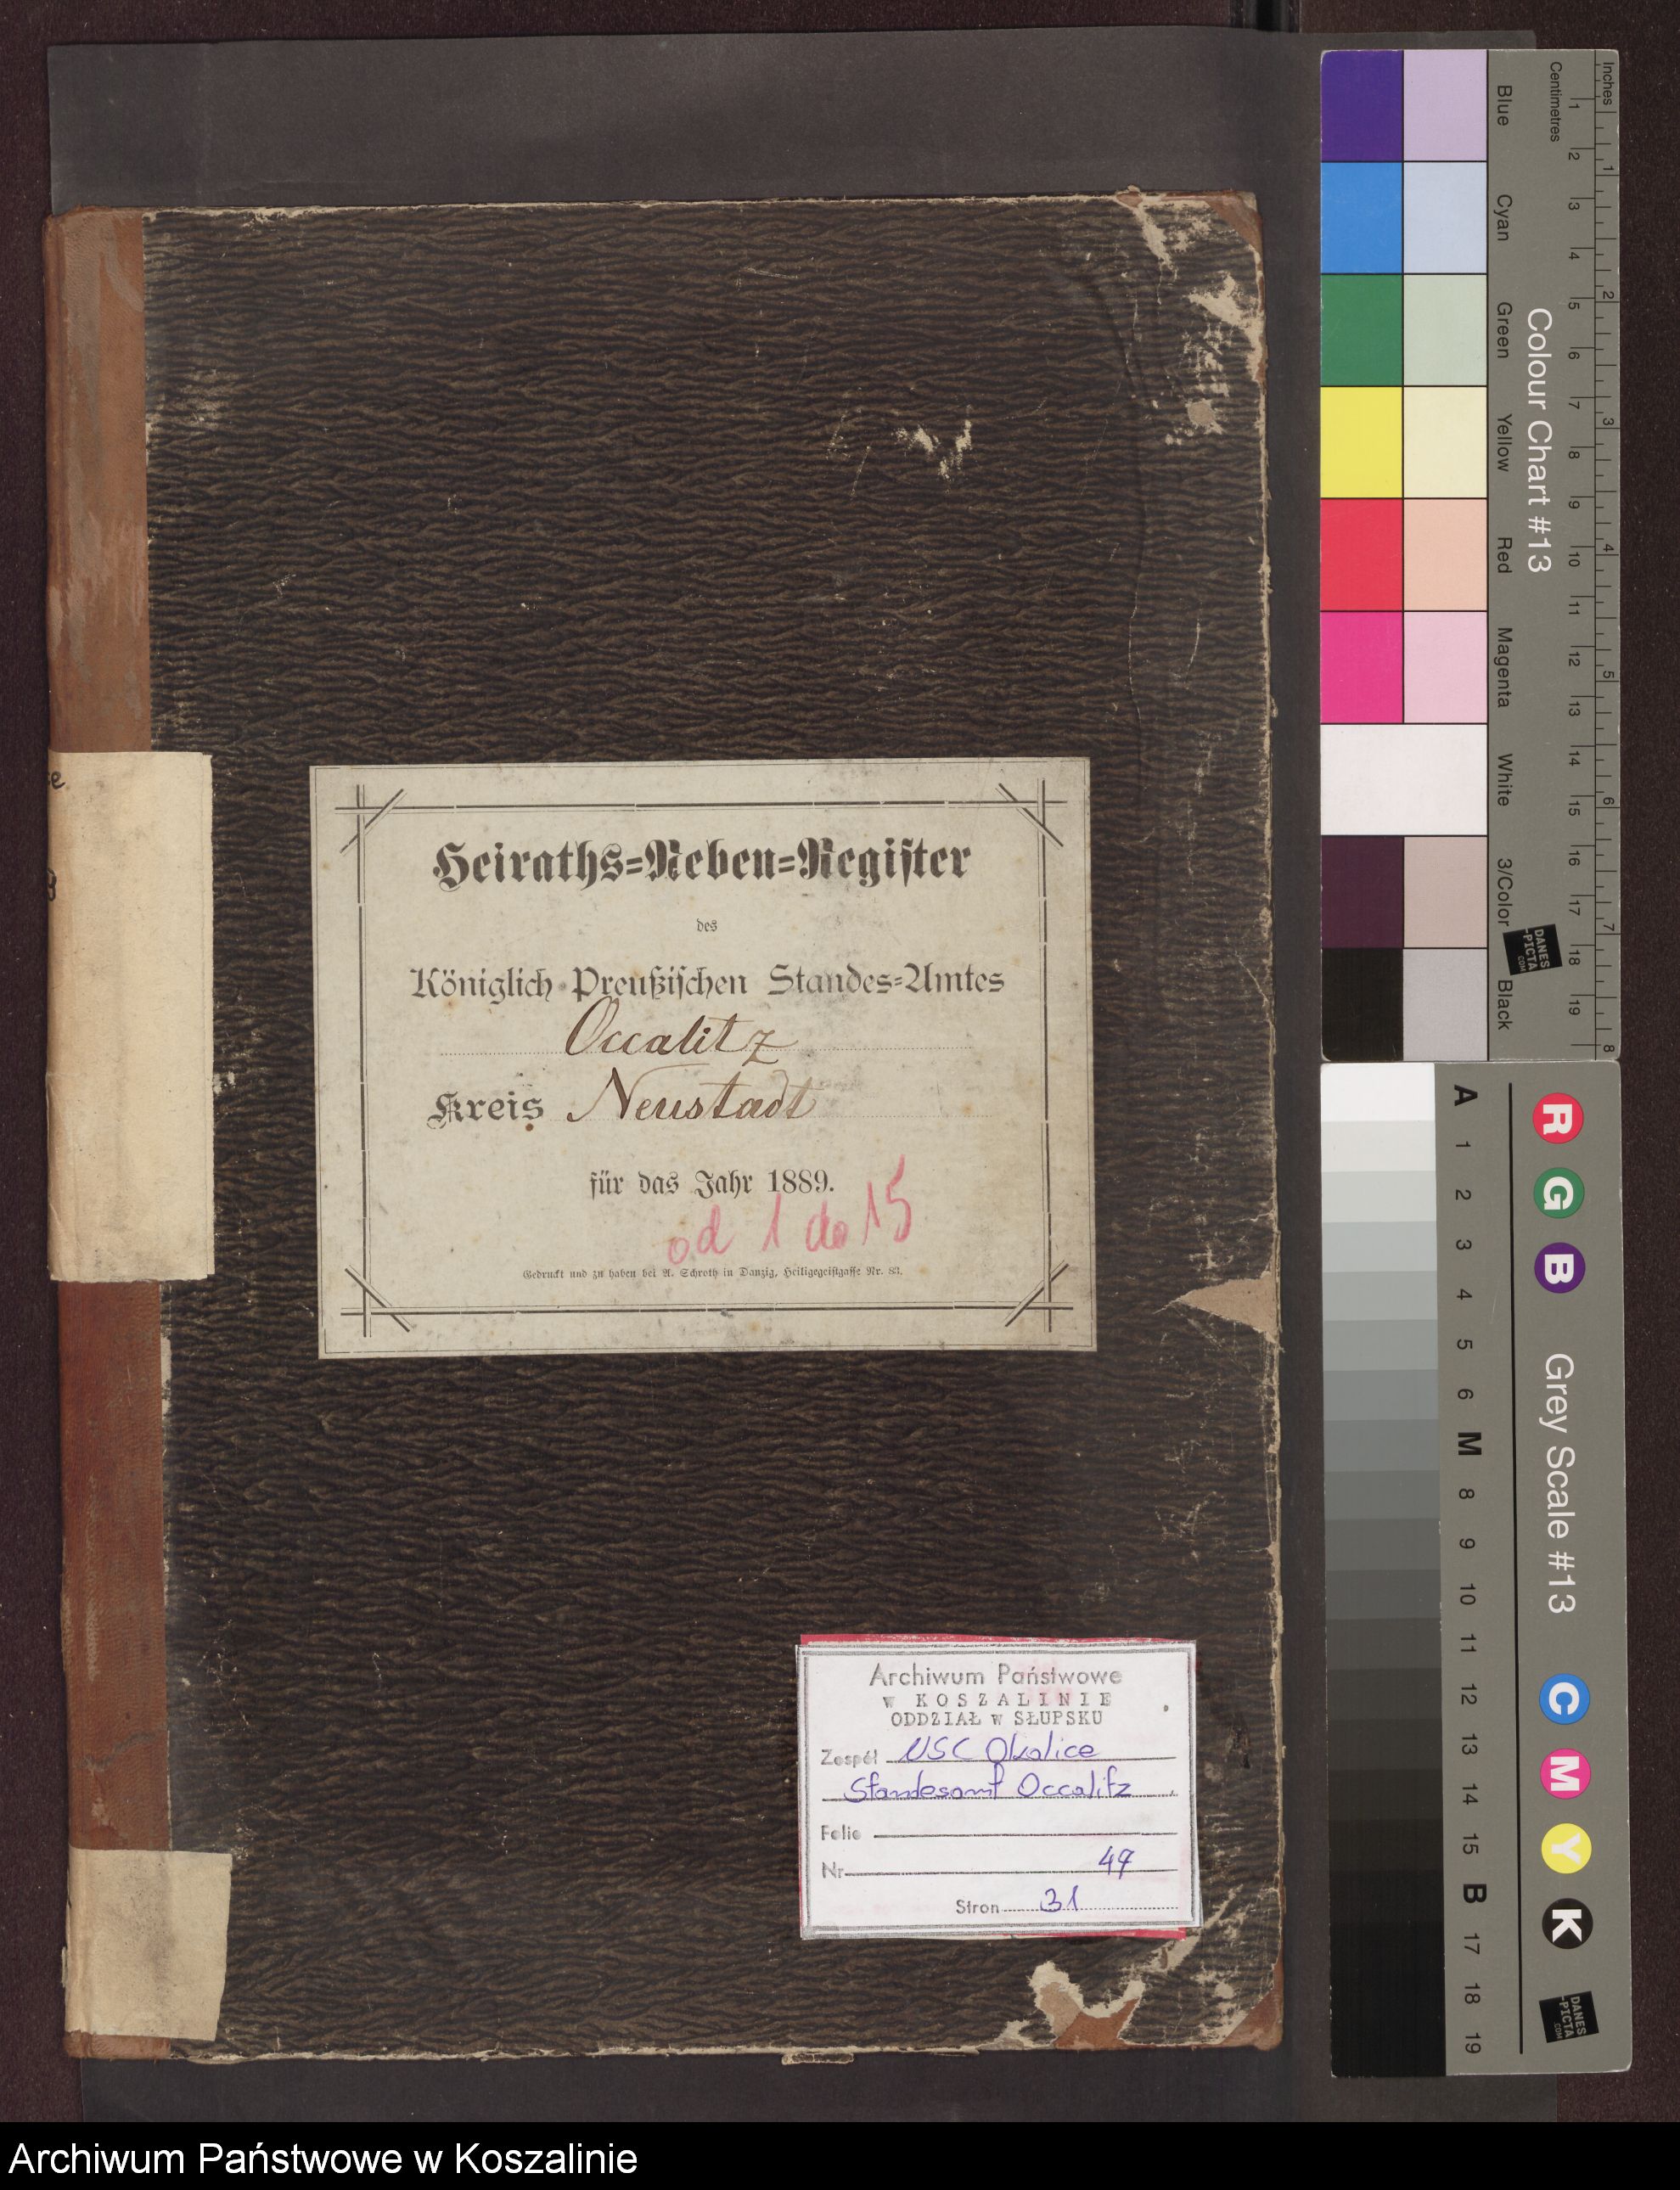 Heiraths=Neben=Register
des
Königlich Preußischen Standes=Amtes
Occalitz
Kreis Neustadt
für das Jahr 1889.
od 1 do 15
Gedruckt und zu haben bei A. Schroth in Danzig, Heiligegeistgasse Nr. 83.
Archiwum Państwowe
w KOSZALINIE
ODDZIAŁ w SŁUPSKU
Zespół USC Okalice
Standesamt Occalitz
Folio
Nr 47
Stron 31
Inches 1 2 3 4 5 6 7 8
Centimetres 1 2 3 4 5 6 7 8 9 10 11 12 13 14 15 16 17 18 19
Colour Chart #13
Blue Cyan Green Yellow Red Magenta White 3/Color Black
DANES
-PICTA
.COM
A 1 2 3 4 5 6 M 8 9 10 11 12 13 14 15 B 17 18 19
R G B Grey Scale #13 C M Y K
DANES
-PICTA
.COM
Archiwum Państwowe w Koszalinie